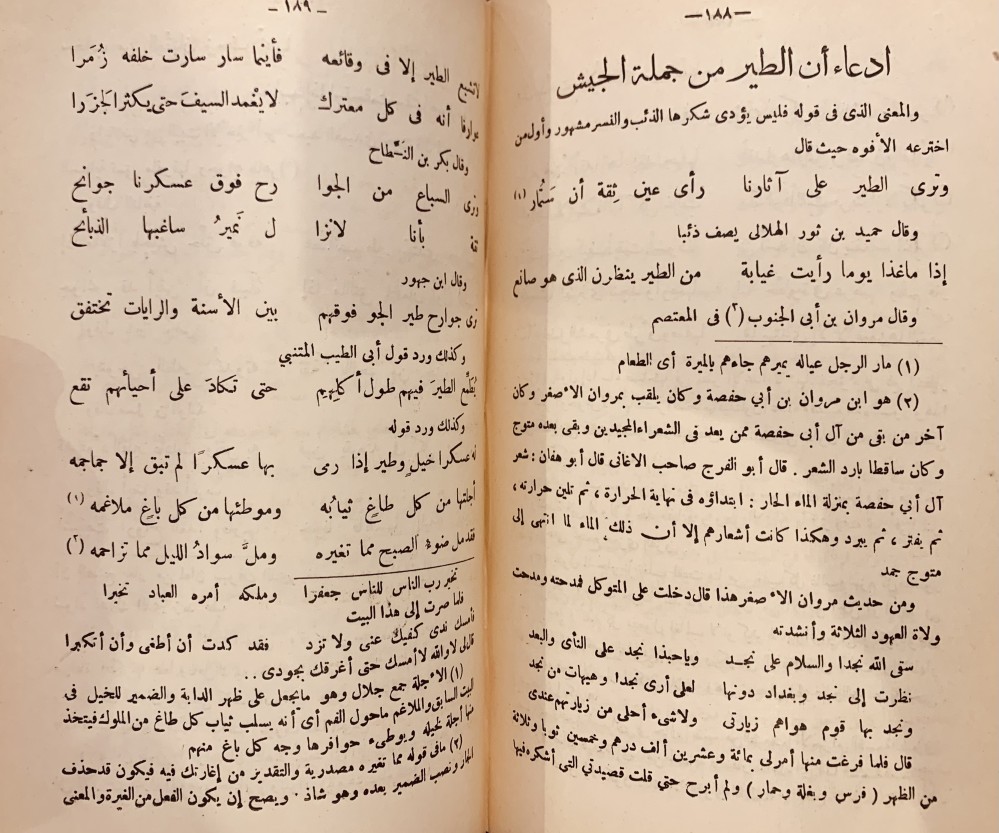 — ١٨٨ —
ادعاء أن الطير من جملة الجيش
والمعنى الذى فى قوله فليس يؤدى شكرها الذئب والنسر مشهور وأول من
اخترعه الأفوه حيث قال
وترى الطير على آثارنا رأى عين ثقة أن ستُمار (١)
وقال حميد بن ثور الهلالى يصف ذئبا
إذا ماغذا يوما رأيت غيابة من الطير ينظرن الذى هو صانع
وقال مروان بن أبى الجنوب (٢) فى المعتصم
(١) مار الرجل عياله يميرهم جاءهم بالميرة أى الطعام
(٢) هو ابن مروان بن أبي حفصة وكان يلقب بمروان الاصغر وكان
آخر من بقى من آل أبى حفصة ممن يعد فى الشعراء المجيدين وبقى بعده متوج
وكان ساقطا بارد الشعر . قال أبو الفرج صاحب الاغانى قال أبو هفان : شعر
آل أبي حفصة بمنزلة الماء الحار : ابتداؤه فى نهاية الحرارة ، ثم تلين حرارته ،
ثم يفتر ، ثم يبرد وهكذا كانت أشعارهم إلا أن ذلك الماء لما انتهى إلى
متوج جمد
ومن حديث مروان الاصغر هذا قال دخلت على المتوكل فمدحته ومدحت
ولاة العهود الثلاثة وأنشدته
سقى الله نجدا والسلام على نجد وياحبذا نجد على النأى والبعد
نظرت إلى نجد وبغداد دونها لعلى أرى نجدا وهيهات من نجد
ونجد بها قوم هواهم زيارتى ولاشىء أحلى من زيارتهم عندى
قال فلما فرغت منها أمرلى بمائة وعشرين ألف درهم وخمسين ثوبا وثلاثة
من الظهر ( فرس وبغلة وحمار ) ولم أبرح حتى قلت قصيدتي التى أشكره فيها
— ١٨٩ —
لاتشبع الطير إلا فى وقائعه فأينما سار سارت خلفه زُمَرا
عوارفا أنه فى كل معترك لايُغمد السيفَ حتى يكثر الجَزَرا
وقال بكر بن النَّطَّاح
وترى السباع من الجوا رح فوق عسكرنا جوانح
ثقة بأنا لانزا ل نَميرُ ساغبها الذبائح
وقال ابن جهور
ترى جوارح طير الجو فوقهم بين الأسنة والرايات تختفق
وكذلك ورد قول أبى الطيب المتنبي
يُطَمِّع الطيرَ فيهم طول أكلِهِم حتى تكادَ على أحيائهم تقع
وكذلك ورد قوله
له عسكرا خيلٍ وطير إذا رمى بها عسكرًا لم تبق إلا جماجمه
أجلتها من كل طاغٍ ثيابُه وموطئها من كل باغٍ ملاغمه (١)
فقد مل ضوء الصبح مما تغيره وملَّ سوادُ الليل مما تزاحمه (٢)
تخير رب الناس للناس جعفرا وملكه أمره العباد تخيرا
فلما صرت إلى هذا البيت
فأمسك ندى كفيك عنى ولا تزد فقد كدت أن أطغى وأن أتكبرا
قال لى لا والله لا أمسك حتى أغرقك بجودى . .
(١) الاجلة جمع جلال وهو مايجعل على ظهر الدابة والضمير للخيل فى
البيت السابق والملاغم ماحول الفم أى أنه يسلب ثياب كل طاغ من الملوك فيتخذ
منها أجلة لخيله ويوطىء حوافرها وجه كل باغ منهم
(٢) ما فى قوله مما تغيره مصدرية والتقدير من إغارتك فيه فيكون قد حذف
الجار ونصب الضمير بعده وهو شاذ . ويصح إن يكون الفعل من الغيرة والمعنى